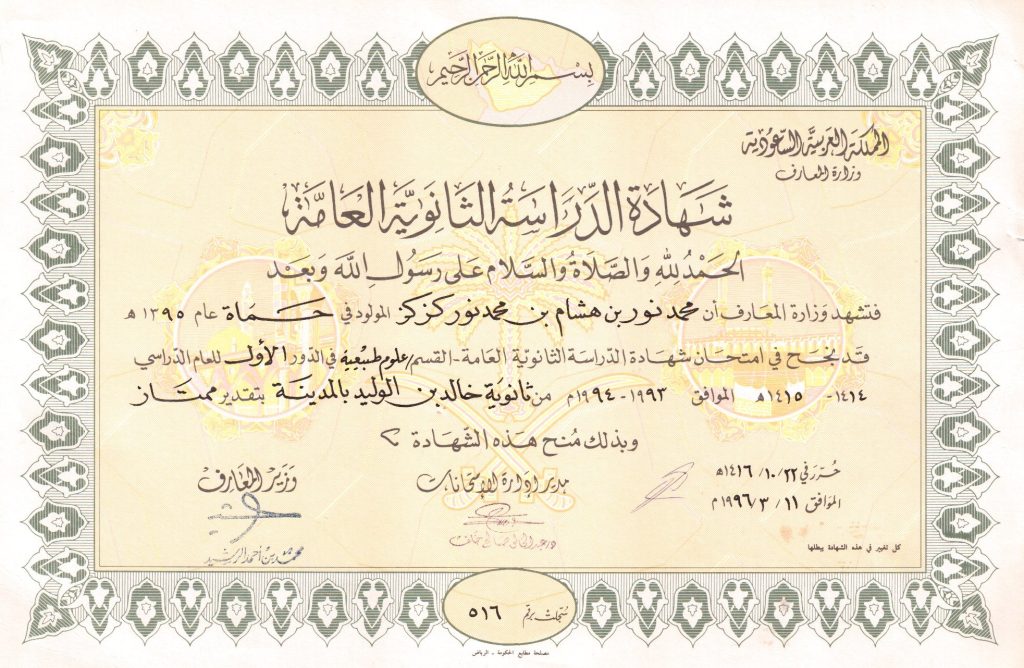 بسم الله الرحمن الرحيم
المملكة العربية السعودية
وزارة المعارف
شهادة الدراسة الثانوية العامة
الحمد لله والصلاة والسلام على رسول الله وبعد
فتشهد وزارة المعارف أن محمد نور بن هشام بن محمد نور كزكز المولود في حماة عام ١٣٩٥ هـ
قد نجح في امتحان شهادة الدراسة الثانوية العامة - القسم/علوم طبيعية في الدور الأول للعام الدراسي
١٤١٤ - ١٤١٥هـ الموافق ١٩٩٣ - ١٩٩٤م من ثانوية خالد بن الوليد بالمدينة بتقدير ممتاز
وبذلك مُنح هذه الشهادة
حُرر في ٢٢/ ١٠/ ١٤١٦هـ
الموافق ١١/ ٣/ ١٩٩٦م
مدير إدارة الامتحانات
وزير المعارف
محمد بن أحمد الرشيد
كل تغيير في هذه الشهادة يبطلها
سُجلت برقم ٥١٦
مصلحة مطابع الحكومة - الرياض